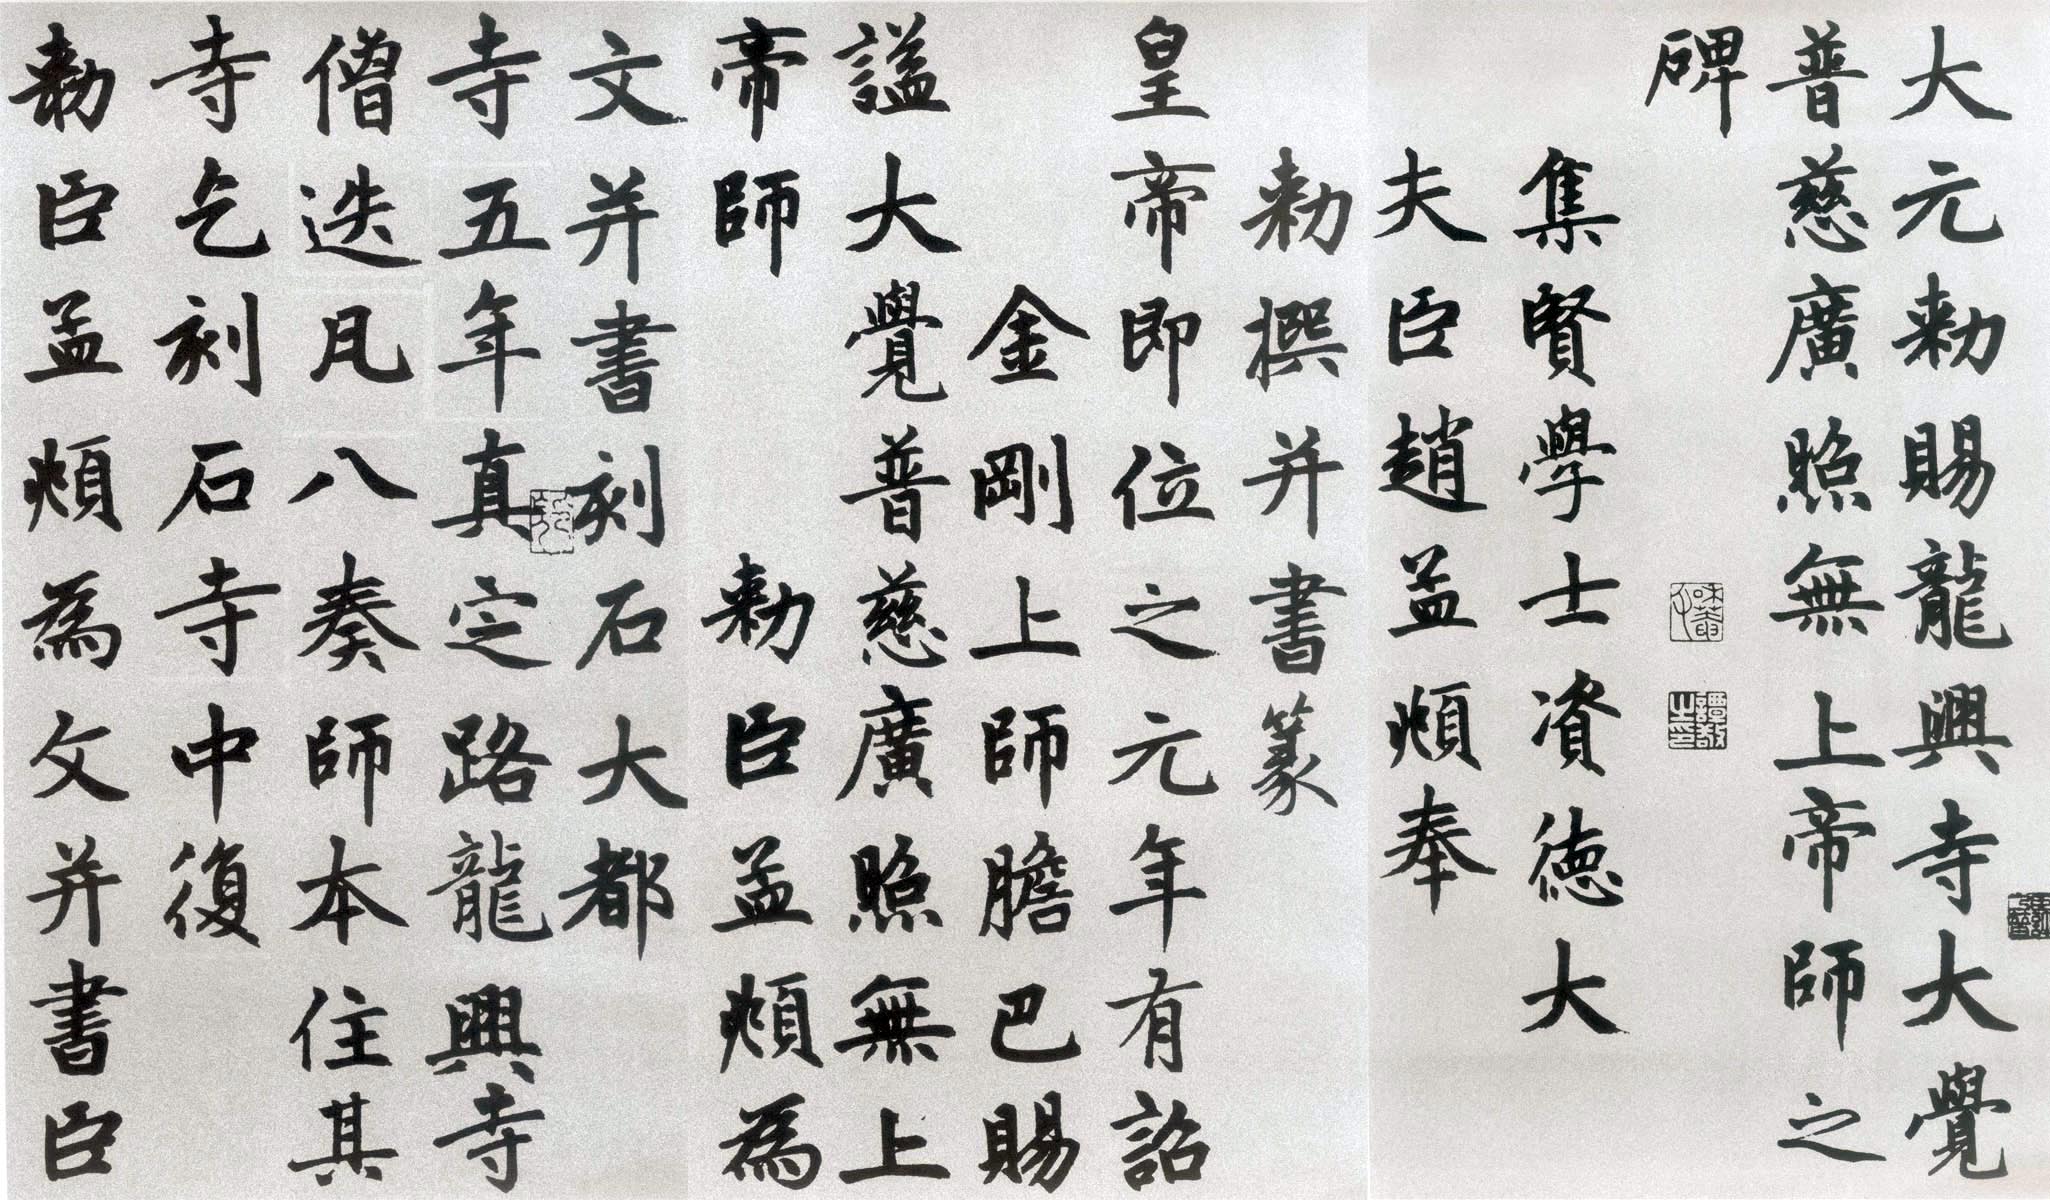 大元勑賜龍興寺大覺
普慈廣照無上帝師之
碑
集賢學士資德大
夫臣趙孟頫奉
勑撰并書篆
皇帝即位之元年有詔
金剛上師膽巴賜
謚大覺普慈廣照無上
帝師
勑臣孟頫為
文并書刻石大都
寺五年真定路龍興寺
僧迭凡八奏師本住其
寺乞刻石寺中復
勑臣孟頫為文并書臣